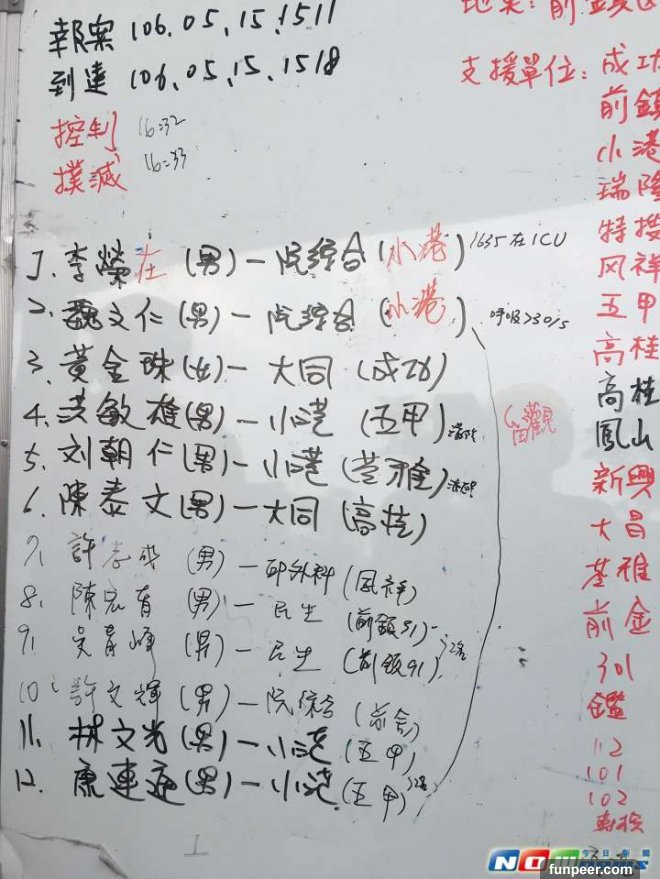 報案 106.05.15.1511
到達 106.05.15.1518
控制 16:32
撲滅 16:33
1. 李榮在(男)—阮綜合(小港) 1635在ICU
2. 魏文仁(男)—阮綜合(小港) 呼吸>30/s
3. 黃金珠(女)—大同(成功)
4. 洪敏雄(男)—小港(五甲)
5. 刘朝仁(男)—小港(苓雅)
6. 陳泰文(男)—大同(高桂)
7. 許志成(男)—邱外科(鳳祥)
8. 陳宏育(男)—民生(前鎮91)
9. 吳青峰(男)—民生(前鎮91)
10. 許文輝(男)—阮綜合(前金)
11. 林文光(男)—小港(五甲)
12. 康連(男)—小港(五甲)
留觀
地案:前鎮區
支援單位:成功
前鎮
小港
瑞隆
特搜
鳳祥
五甲
高桂
高桂
鳳山
新興
大昌
苓雅
前金
301
鑑
112
101
102
NOW 今日新聞
funpeer.com